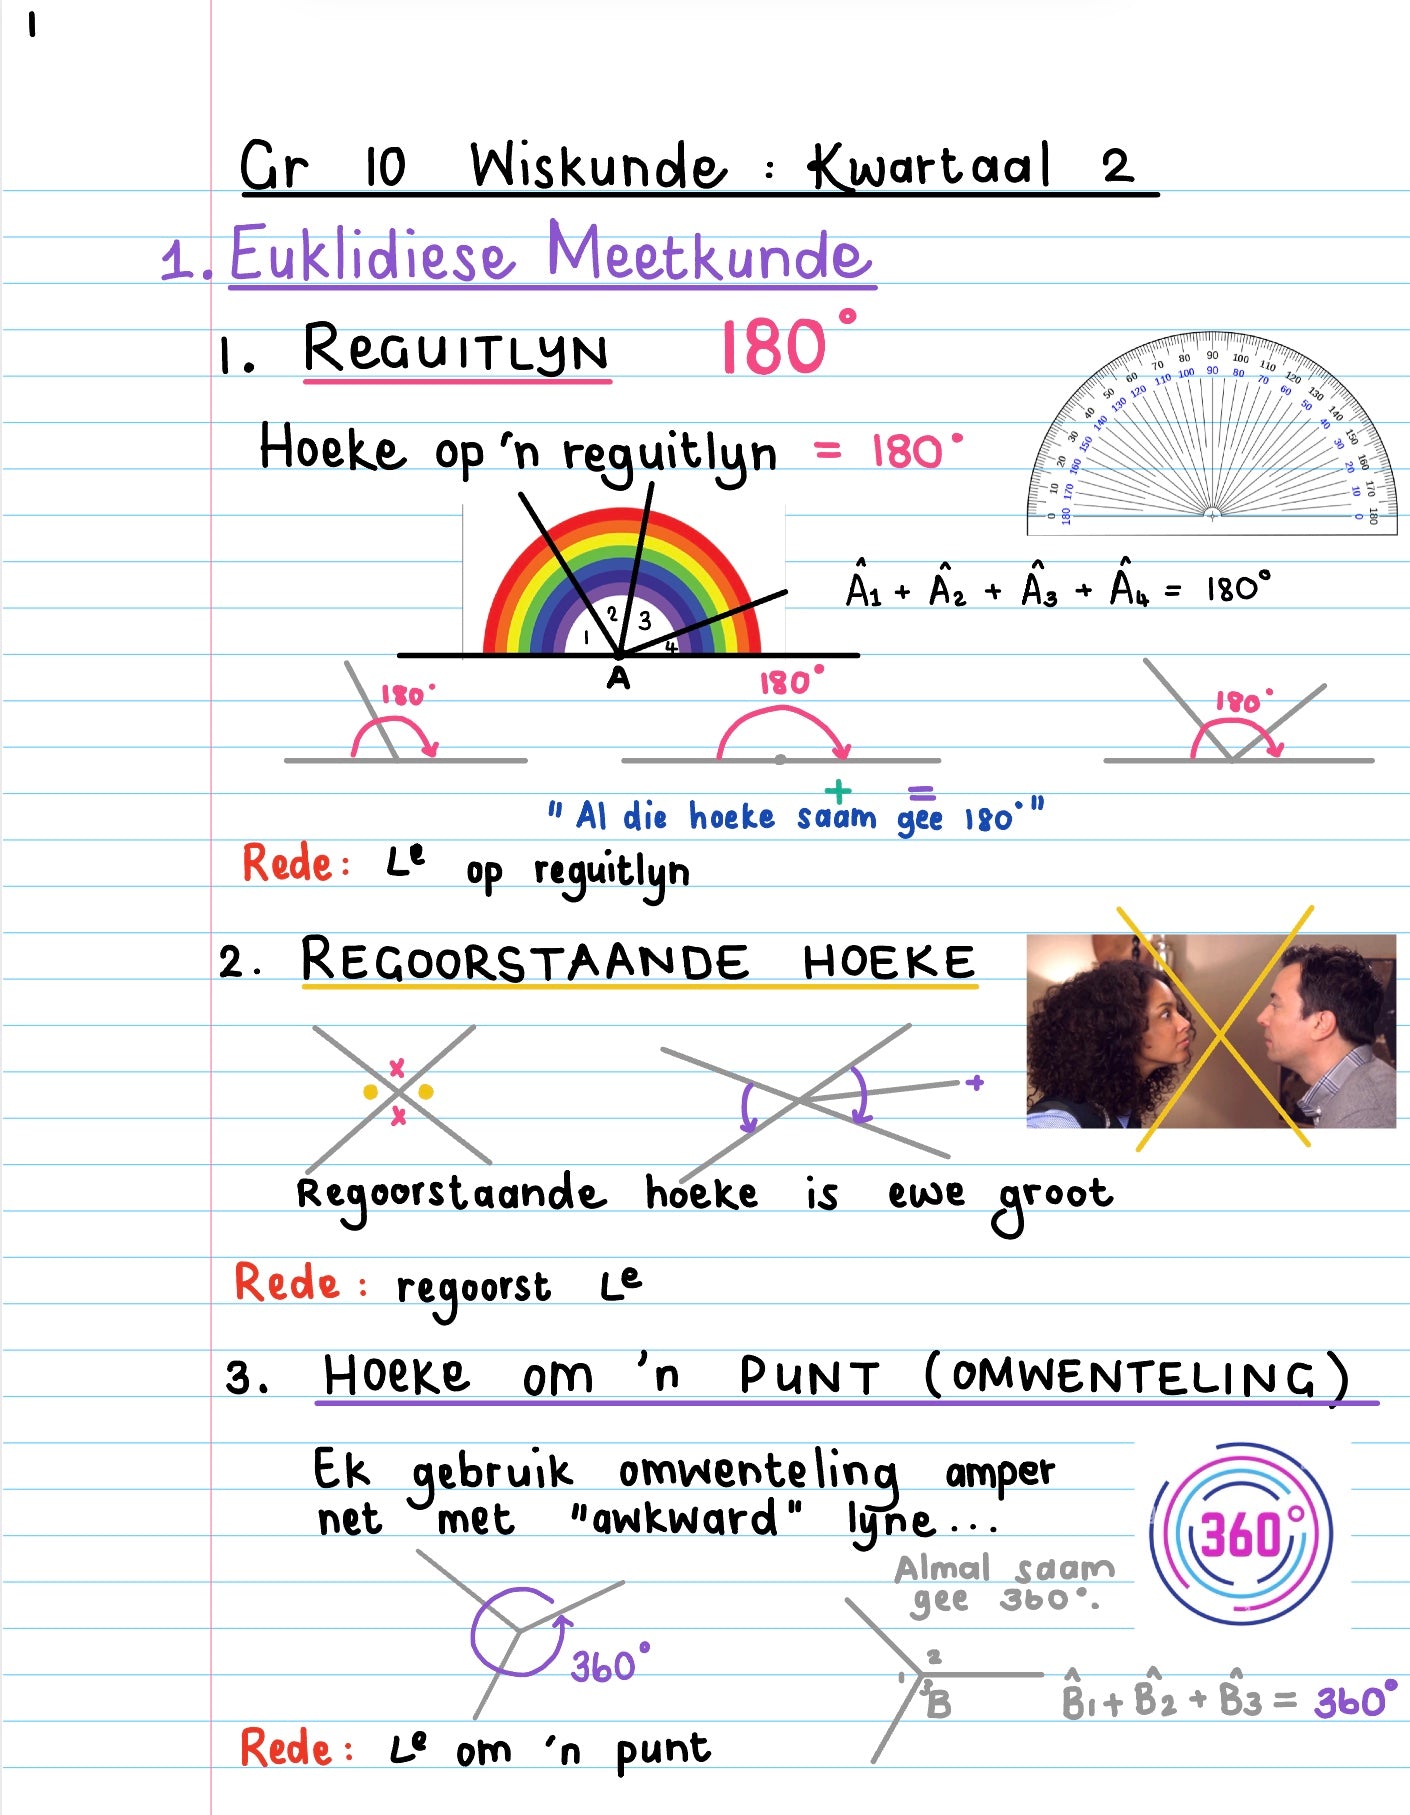 1
Gr 10 Wiskunde : Kwartaal 2
1. Euklidiese Meetkunde
1. REGUITLYN 180°
Hoeke op 'n reguitlyn = 180°
0 10 20 30 40 50 60 70 80 90 100 110 120 130 140 150 160 170 180
180 170 160 150 140 130 120 110 100 90 80 70 60 50 40 30 20 10 0
1 2 3 4
A
Â1 + Â2 + Â3 + Â4 = 180°
180° 180° 180°
+ =
"Al die hoeke saam gee 180°"
Rede: Lᵉ op reguitlyn
2. REGOORSTAANDE HOEKE
x
x
+
Regoorstaande hoeke is ewe groot
Rede: regoorst Lᵉ
3. HOEKE OM 'n PUNT (OMWENTELING)
Ek gebruik omwenteling amper
net met "awkward" lyne...
360°
Almal saam
gee 360°.
360°
1 2 3 B
B̂1 + B̂2 + B̂3 = 360°
Rede: Lᵉ om 'n punt